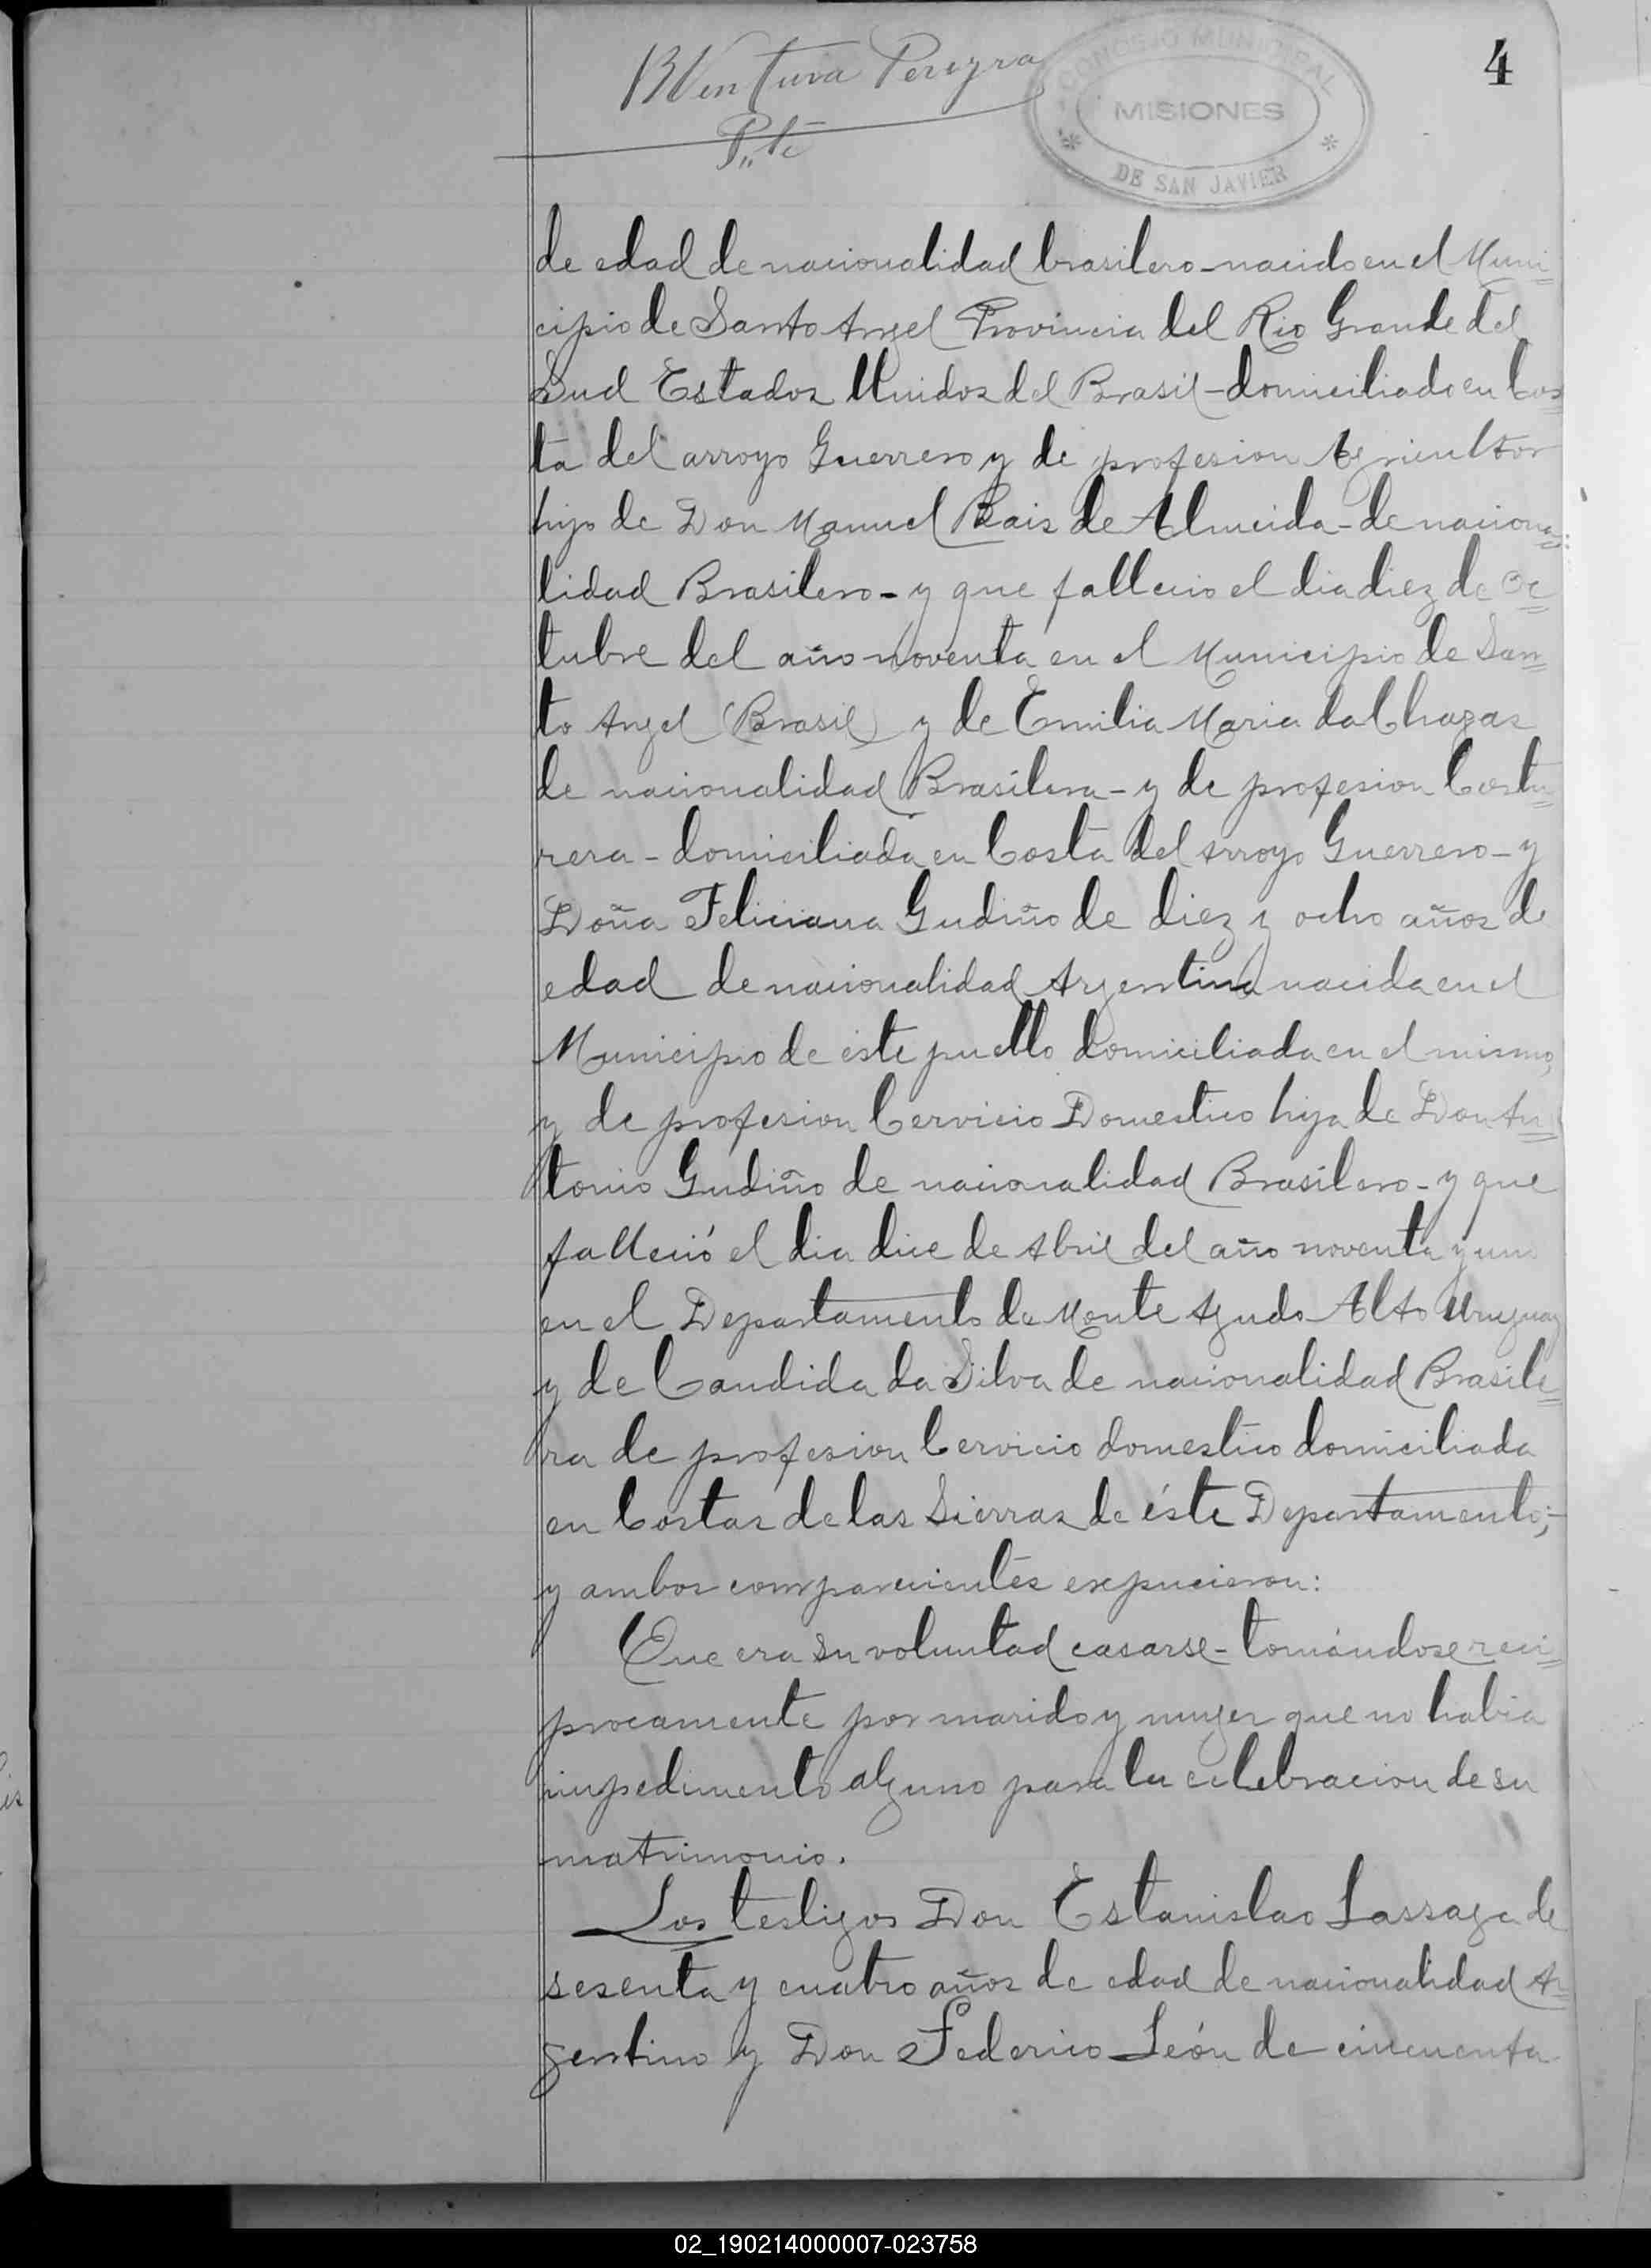 4
BVentura Pereyra
Pte
CONCEJO MUNICIPAL
MISIONES
DE SAN JAVIER
de edad de nacionalidad brasilero - nacido en el Muni=
cipio de Santo Angel Provincia del Rio Grande del
Sud Estados Unidos del Brasil - domiciliado en Cos=
ta del arroyo Guerrero y de profesion Agricultor
hijo de Don Manuel Pais de Almeida - de naciona=
lidad Brasilero - y que fallecio el dia diez de Oc=
tubre del año noventa en el Municipio de San=
to Angel (Brasil) y de Emilia Maria da Chagas
de nacionalidad Brasilera - y de profesion Costu=
rera - domiciliada en Costa del arroyo Guerrero - y
Doña Feliciana Gudiño de diez y ocho años de
edad de nacionalidad Argentina nacida en el
Municipio de éste pueblo domiciliada en el mismo,
y de profesion Cervicio Domestico hija de Don An=
tonio Gudiño de nacionalidad Brasilero - y que
falleció el dia dice de Abril del año noventa y uno
en el Departamento de Monte Agudo Alto Uruguay
y de Candida da Silva de nacionalidad Brasile=
ra de profesion Cervicio domestico domiciliada
en Costas de las Sierras de éste Departamento;-
y ambos comparecientes expucieron:
Que era su voluntad casarse - tomándose reci=
procamente por marido y muger que no habia
impedimento alguno para la celebracion de su
matrimonio.
Los testigos Don Estanislao Lassaga de
sesenta y cuatro años de edad de nacionalidad Ar=
gentino y Don Federico León de cincuenta
02_190214000007-023758